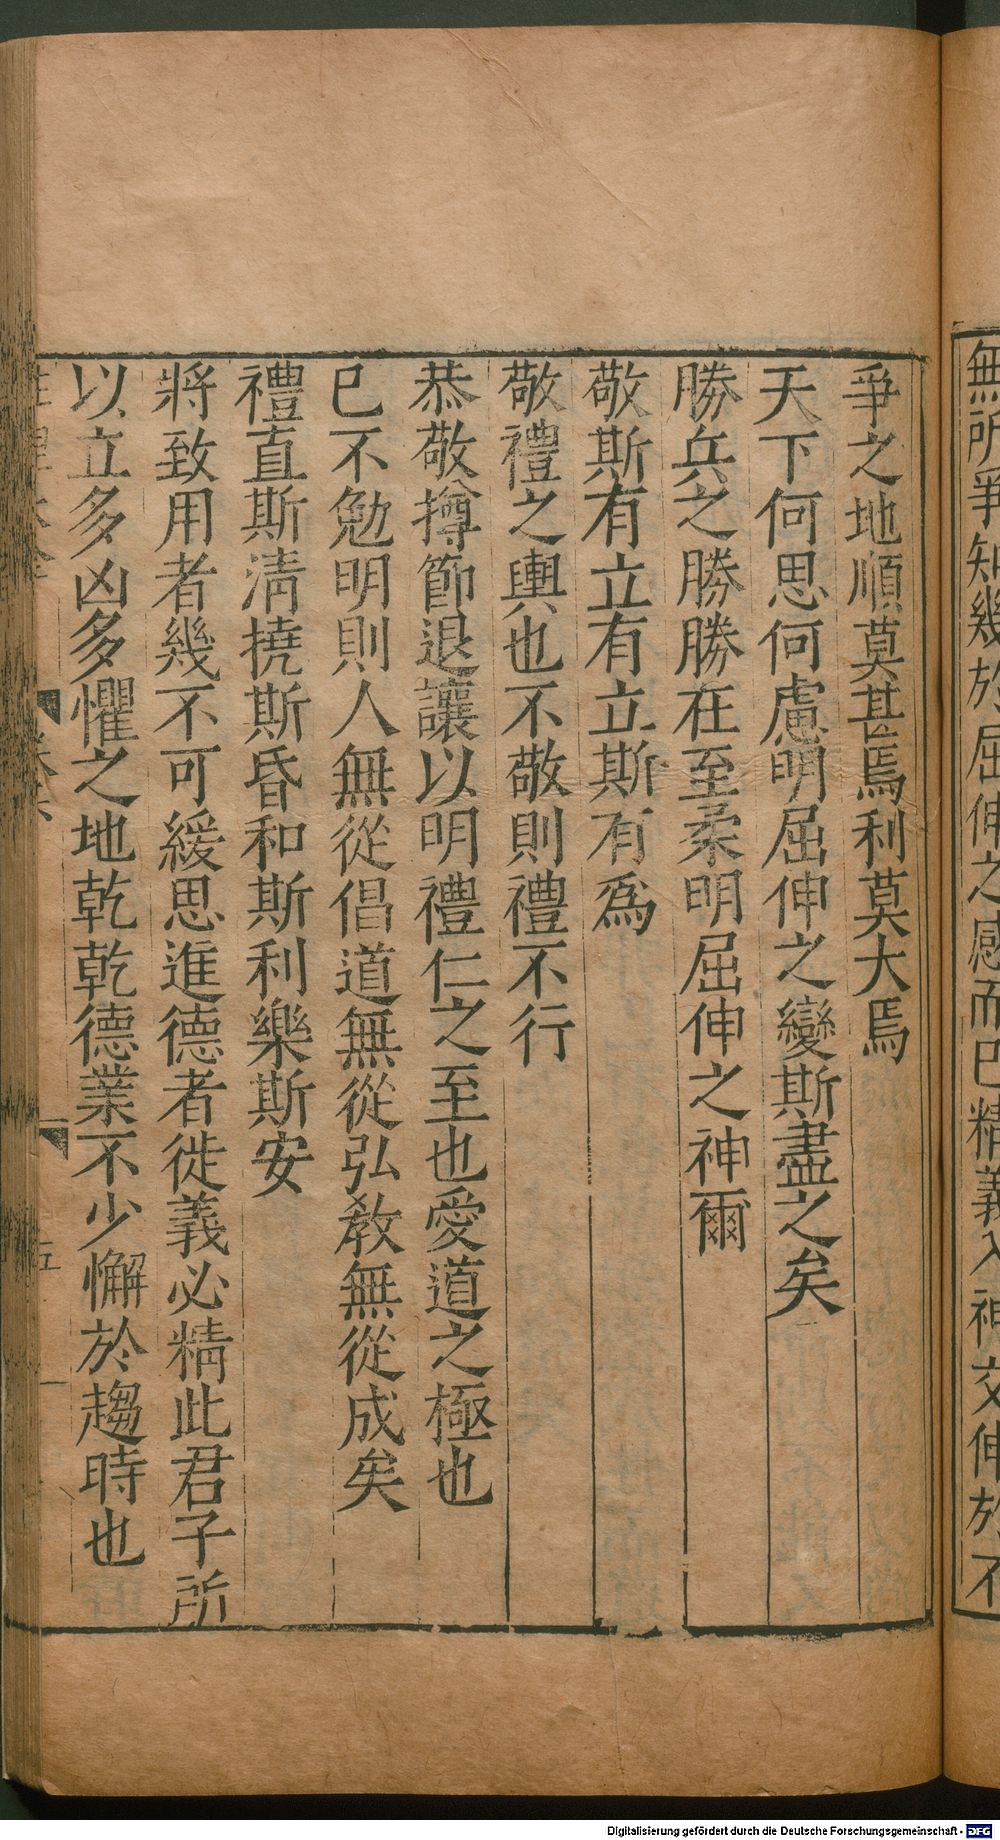 無所爭知幾於屈伸之感而已精義入神交伸於不
爭之地順莫甚焉利莫大焉
天下何思何慮明屈伸之變斯盡之矣
勝兵之勝勝在至柔明屈伸之神爾
敬斯有立有立斯有爲
敬禮之輿也不敬則禮不行
恭敬撙節退讓以明禮仁之至也愛道之極也
已不勉明則人無從倡道無從弘敎無從成矣
禮直斯淸撓斯昏和斯利樂斯安
將致用者幾不可緩思進德者徙義必精此君子所
以立多凶多懼之地乾乾德業不少懈於趨時也
五
Digitalisierung gefördert durch die Deutsche Forschungsgemeinschaft - DFG